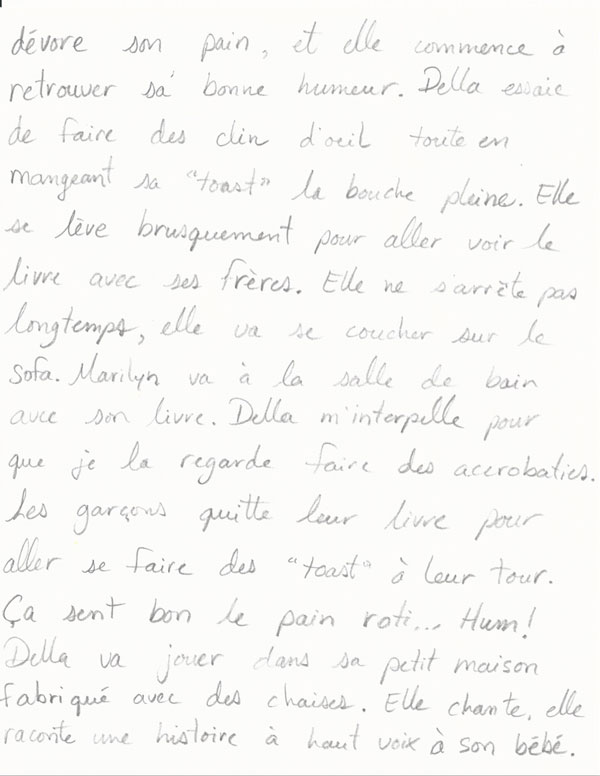 dévore son pain, et elle commence à
retrouver sa bonne humeur. Della essaie
de faire des clin d'oeil toute en
mangeant sa "toast" la bouche pleine. Elle
se lève brusquement pour aller voir le
livre avec ses frères. Elle ne s'arrête pas
longtemps, elle va se coucher sur le
sofa. Marilyn va à la salle de bain
avec son livre. Della m'interpelle pour
que je la regarde faire des accrobaties.
Les garçons quitte leur livre pour
aller se faire des "toast" à leur tour.
Ça sent bon le pain roti... Hum!
Della va jouer dans sa petit maison
fabriqué avec des chaises. Elle chante, elle
raconte une histoire à haut voix à son bébé.